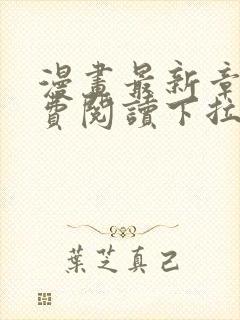 漫畫最新章
費閱讀下拉
葉芝真己